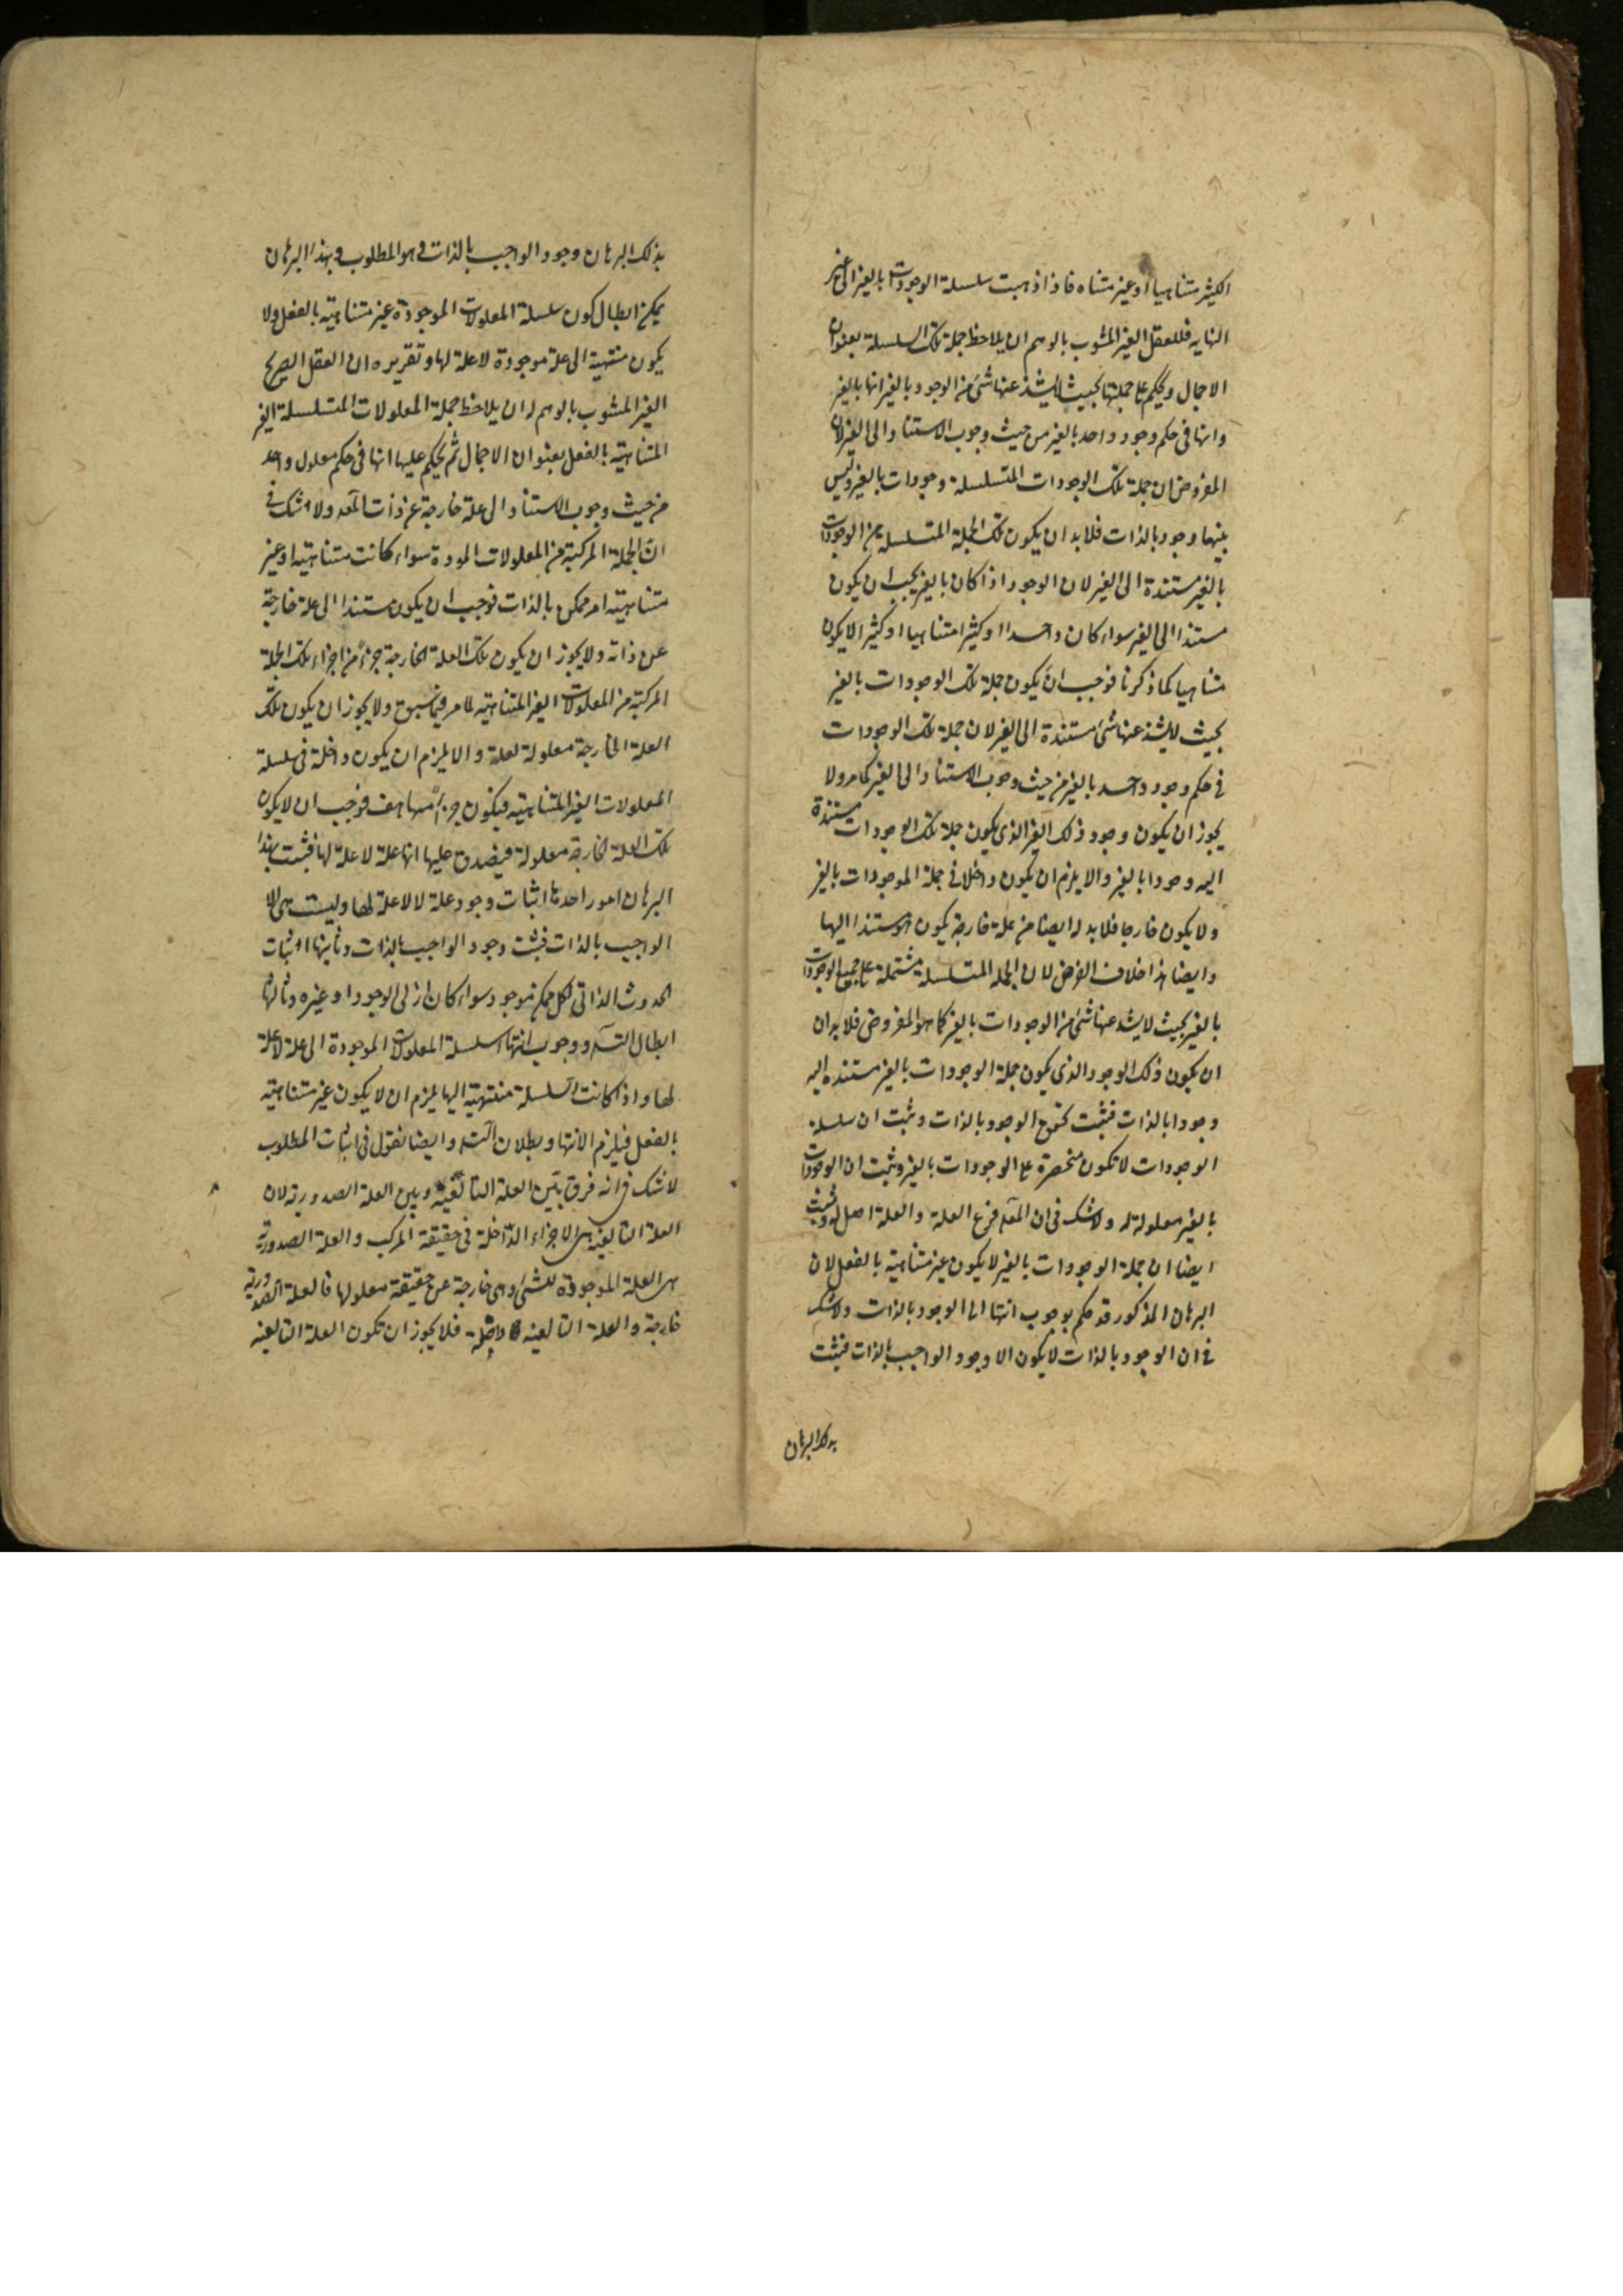 الكثير متناهيا او غير متناه فاذا ذهبت سلسلة الوجودات بالغير الى غير
النهايه فللعقل الغير المشوب بالوهم ان يلاحظ جملة تلك السلسلة بعنوان
الاجمال ويحكم على جملتها بحيث لايشذ عنها شئ من الوجود بالغير انها بالغير
وانها في حكم وجود واحد بالغير من حيث وجوب الاستناد الى الغير لان
المفروض ان جملة تلك الوجودات المتسلسلة وجودات بالغير وليس
بينها وجود بالذات فلابد ان يكون تلك الجملة المتسلسلة من الوجودات
بالغير مستندة الى الغير لان الوجود اذا كان بالغير يجب ان يكون
مستندا الى الغير سواء كان واحدا او كثيرا متناهيا او كثيرا لايكون
متناهيا كما ذكرنا فوجب ان يكون جملة تلك الوجودات بالغير
بحيث لايشذ عنها شئ مستندة الى الغير لان جملة تلك الوجودات
في حكم وجود واحد بالغير من حيث وجوب الاستناد الى الغير كما مر ولا
يجوز ان يكون وجود ذلك الغير الذى يكون جملة تلك الوجودات مستندة
اليه وجودا بالغير والا يلزم ان يكون داخلا في جملة الموجودات بالغير
ولا يكون خارجا فلابد له ايضا من علة خارجة يكون هو مستندا اليها
وايضا هذا خلاف الفرض لان الجمله المتسلسلة مشتملة على جميع الوجودات
بالغير بحيث لايشذ عنها شئ من الوجودات بالغير كما هو المفروض فلابد ان
ان يكون ذلك الوجود الذى يكون جملة الوجودات بالغير مستنده اليه
وجودا بالذات فثبت تحقق الوجود بالذات وثبت ان سلسلة
الوجودات لا تكون منحصرة على الوجودات بالغير وثبت ان الوجودات
بالغير معلولة له ولاشك في ان المعلول فرع العلة والعلة اصل له وثبت
ايضا ان جملة الوجودات بالغير لايكون غير متناهية بالفعل لان
البرهان المذكور قد حكم بوجوب انتها الى الوجود بالذات ولاشك
في ان الوجود بالذات لايكون الا وجود الواجب بالذات فثبت
بذلك البرهان
بذلك البرهان وجود الواجب بالذات وهو المطلوب وبهذا البرهان
يمكن ابطال كون سلسلة المعلولات الموجودة غير متناهية بالفعل ولا
يكون منتهية الى علة موجودة لا علة لها وتقريره ان العقل الصريح
الغير المشوب بالوهم له ان يلاحظ جملة المعلولات المتسلسلة الغير
المتناهية بالفعل بعنوان الاجمال ثم يحكم عليها انها في حكم معلول واحد
من حيث وجوب الاستناد الى علة خارجة عن ذات المعلول ولا شك في
ان الجملة المركبة من المعلولات الموجودة سواء كانت متناهية او غير
متناهية امر ممكن بالذات فوجب ان يكون مستندا الى علة خارجة
عن ذاته ولا يجوز ان يكون تلك العلة الخارجة جزءً من اجزاء تلك الجملة
المركبة من المعلولات الغير المتناهية لما مر فيما سبق ولا يجوز ان يكون تلك
العلة الخارجة معلولة لعلة والا يلزم ان يكون داخلة في سلسلة
المعلولات الغير المتناهية فيكون جزءً منها هف فوجب ان لا يكون
تلك العلة الخارجة معلولة فيصدق عليها انها علة لا علة لها فثبت بهذا
البرهان امور احدها اثبات وجود علة لا علة لها وليست هى الا
الواجب بالذات فثبت وجود الواجب بالذات وثانيها اثبات
الحدوث الذاتى لكل ممكن موجود سواء كان ازلى الوجود او غيره وثالثها
ابطال التسلسل ووجوب انتهاء سلسلة المعلولات الموجودة الى علة لا علة
لها واذا كانت السلسلة منتهية اليها يلزم ان لا يكون غير متناهية
بالفعل فيلزم الانتها وبطلان التسلسل وايضا نقول في اثبات المطلوب
لا شك في انه فرق بين العلة التالفية وبين العلة الصدورية لان
العلة التالفية هى الاجزاء الداخلة في حقيقة المركب والعلة الصدورية
هى العلة الموجودة للشئ وهى خارجة عن حقيقة معلولها فالعلة الصدورية
خارجة والعلة التالفية داخلة فلا يجوز ان تكون العلة التالفية